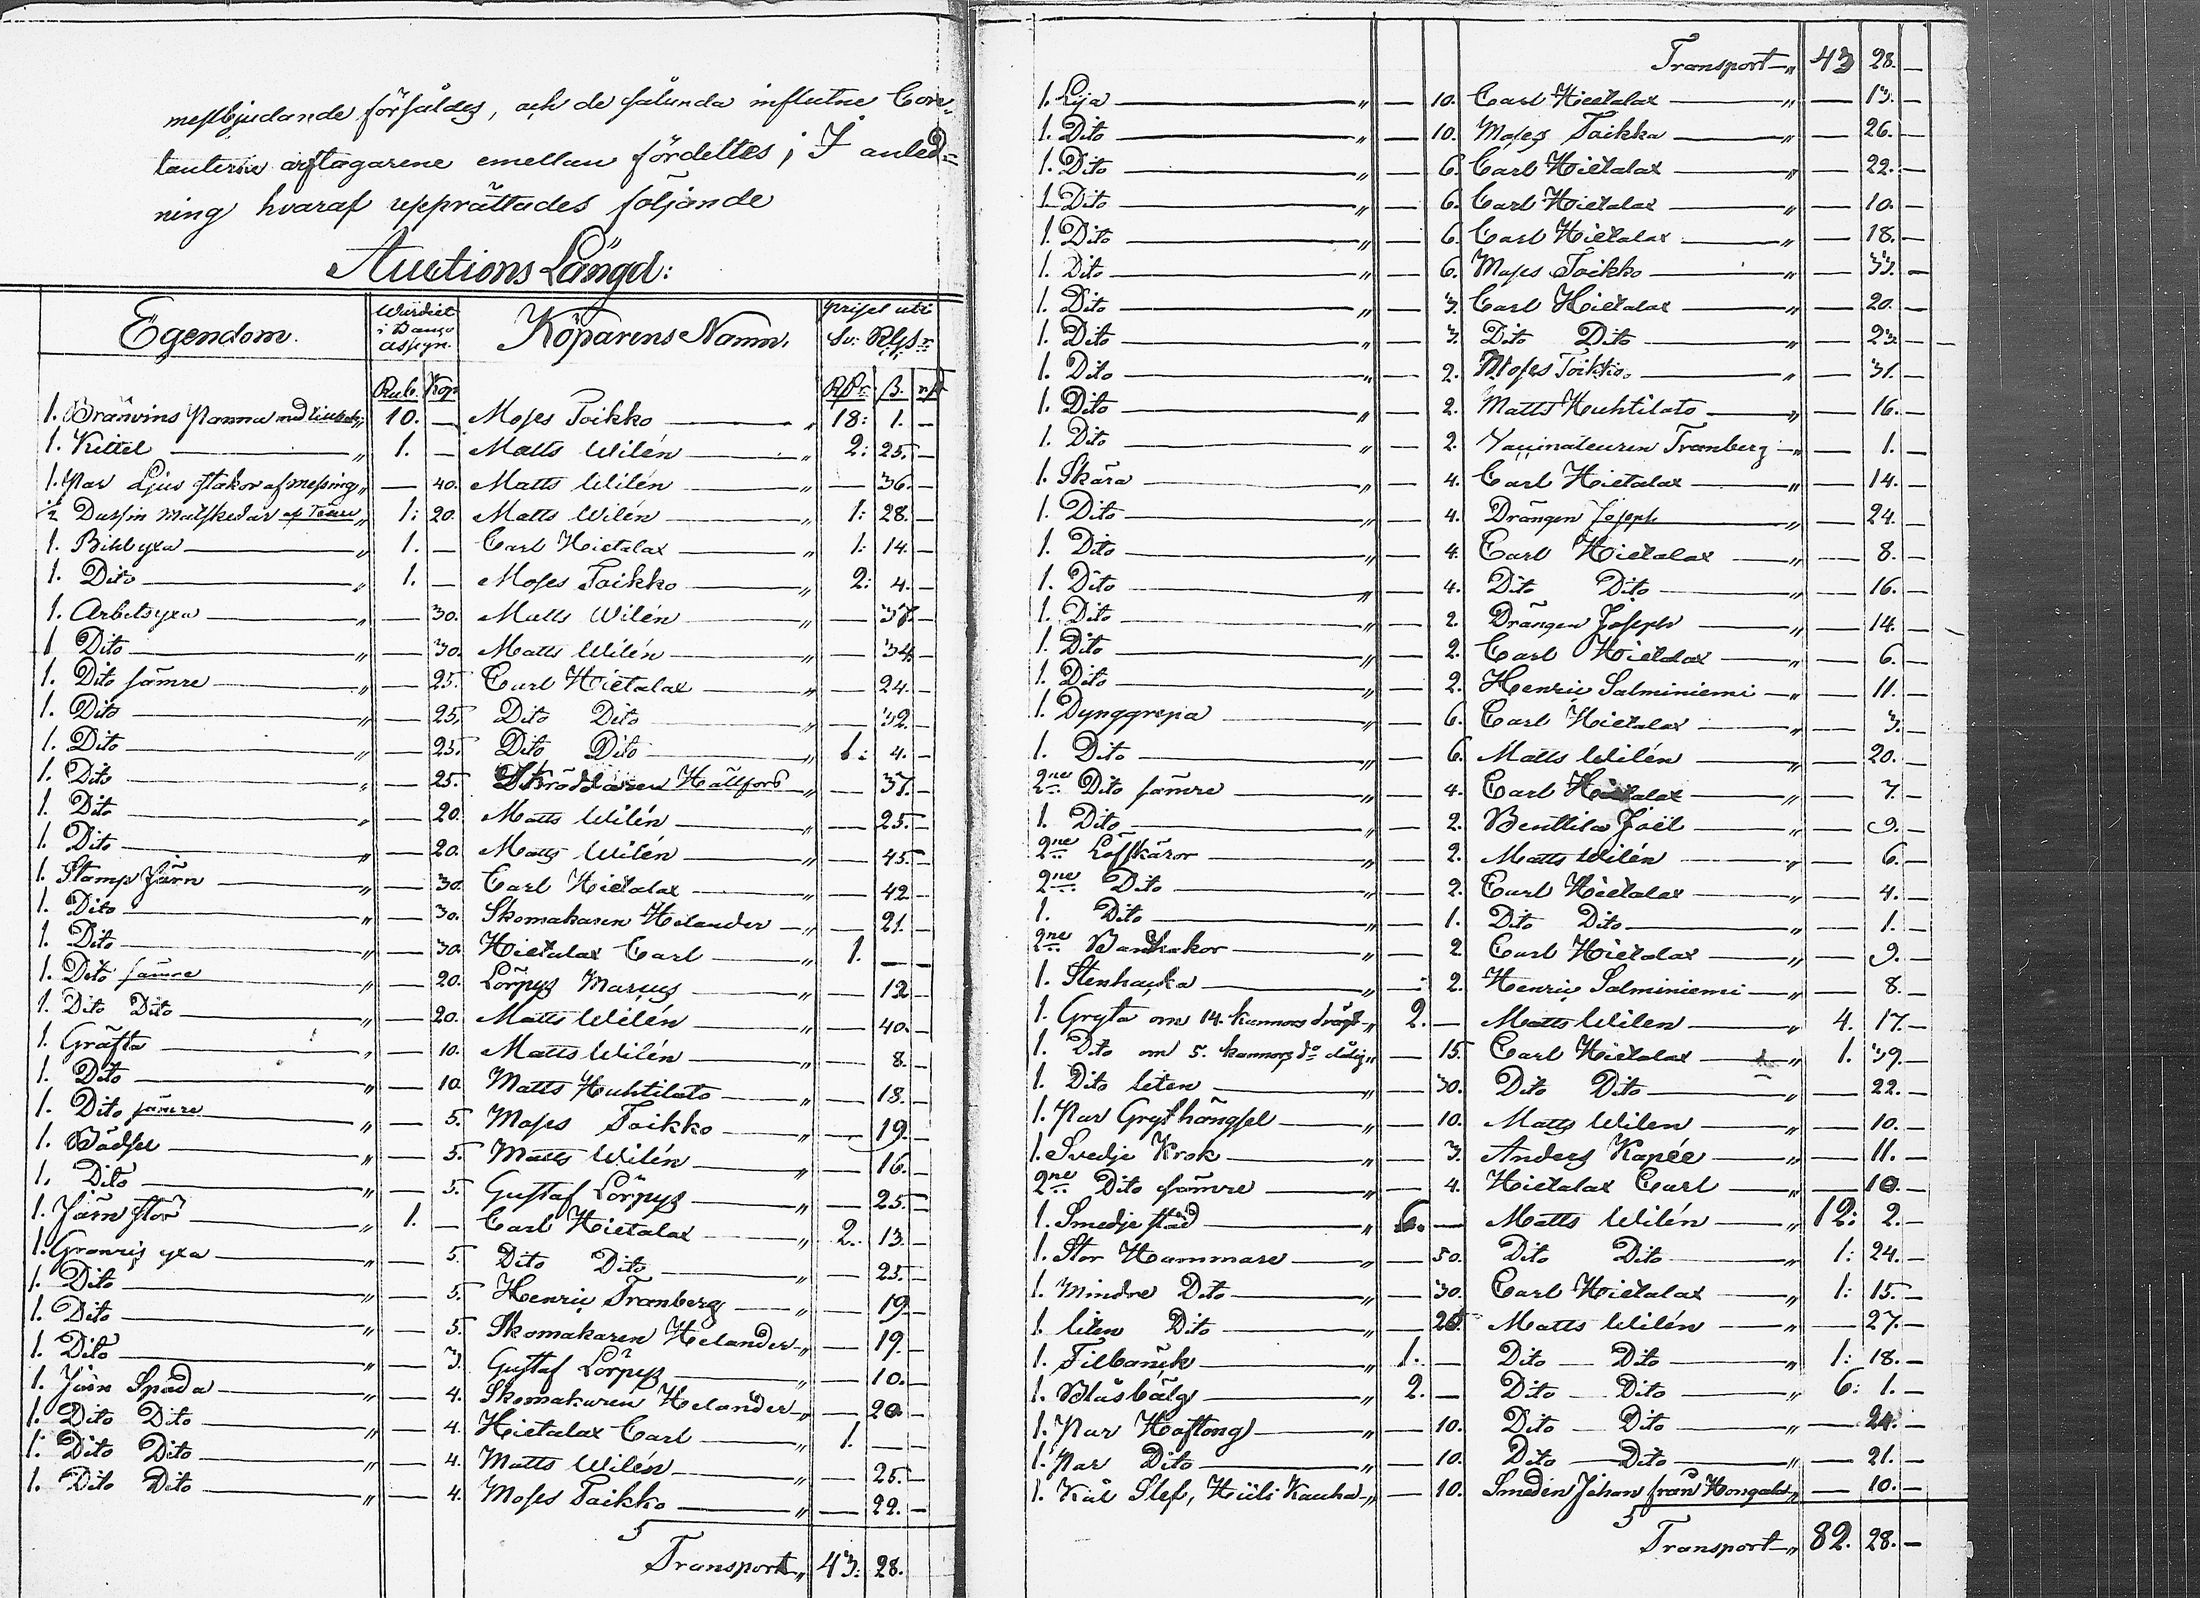 mestbjudande försåldes, och de sålunda influtne Con-
tanterne arftagarene emellan fördeltes; I anled=
ning hvaraf upprättades följande
Auctions Längd:
Egendom. Värdiet i Banco Assign. Köparens Namn. Priset uti Sv: Rgs.
Rub. Kop. RDr. ß. rst
1. Bränvins Panna med " 10. — Moses Toikko " 18: 1. —
1. Kittel " 1. — Matts Wilén " 2: 25. —
1. Par Ljus stakor af messing " — 40. Matts Wilén " — 36. —
1/2 Dussin Matskedar af Tenn " 1: 20. Matts Wilén " 1: 28. —
1. Bihlyxa " 1. — Carl Hietalax " 1: 14. —
1. Dito " 1. — Moses Toikko " 2: 4. —
1. Arbetsyxa " — 30. Matts Wilén " — 37. —
1 Dito " — 30. Matts Wilén " — 34 —
1. Dito sämre " — 25. Carl Hietalax " — 24. —
1. Dito " — 25. Dito Dito " — 32. —
1. Dito " — 25. Dito Dito " 1: 4. —
1. Dito " — 25. Skräddaren Hällfors " — 37. —
1. Dito " — 20. Matts Wilén " — 25. —
1. Dito " — 20. Matts Wilén " — 45. —
1. Stamp Järn " — 30. Carl Hietalax " — 42 —
1. Dito " — 30. Skomakaren Helander " — 21. —
1. Dito " — 30. Hietalax Carl " 1. — —
1. Dito sämre " — 20. Lörpys Marcus " — 12 —
1. Dito Dito " — 20. Matts Wilén " — 40. —
1. Gräfta " — 10. Matts Wilén " — 8. —
1. Dito " — 10. Matts Huhtilato " — 18. —
1. Dito sämre " — 5. Moses Toikko " — 19. —
1. Bädsel " — 5. Matts Wilén " — 16. —
1. Dito " — 5. Gustaf Lörpys " — 25. —
1. Järn stör " 1. — Carl Hietalax " 2. 13. —
1. Granris yxa " — 5. Dito Dito " — 25. —
1. Dito " — 5. Henric Tranberg " — 19 —
1. Dito " — 5. Skomakaren Helander " — 19. —
1. Dito " — 3. Gustaf Lörpys " — 10. —
1. Järn Spada " — 4. Skomakaren Helander " — 20. —
1. Dito Dito " — 4. Hietalax Carl " 1. — —
1. Dito Dito " — 4. Matts Wilén " — 25. —
1. Dito Dito " — 4. Moses Toikko " — 22. —
Transport " 43: 28.
Transport " 43 28. —
1. Lija " — 10. Carl Hietalax " — 13. —
1. Dito " — 10. Moses Toikka " — 26. —
1. Dito " — 6. Carl Hietalax " — 22. —
1. Dito " — 6. Carl Hietalax " — 10. —
1. Dito " — 6. Carl Hietalax " — 18. —
1. Dito " — 6. Moses Toikko " — 33. —
1. Dito " — 3. Carl Hietalax " — 20. —
1. Dito " — 3. Dito Dito " — 23 —
1. Dito " — 2. Moses Toikko " — 31. —
1. Dito " — 2. Matts Huhtilato " — 16. —
1. Dito " — 2. Vaccinateuren Tranberg " — 1. —
1. Skära " — 4. Carl Hietalax " — 14. —
1. Dito " — 4. Drängen Joseph " — 24. —
1. Dito " — 4. Carl Hietalax " — 8. —
1. Dito " — 4. Dito Dito " — 16. —
1. Dito " — 2. Drängen Joseph " — 14. —
1. Dito " — 2. Carl Hietalax " — 6. —
1. Dito " — 2. Henric Salminiemi " — 11. —
1. Dynggrepa " — 6. Carl Hietalax " — 3. —
1. Dito " — 6. Matts Wilén " — 20. —
2ne Dito sämre " — 4. Carl Hietalax " — 7. —
1. Dito " — 2. Benttila Joël " — 9. —
2ne Löfskäror " — 2. Matts Wilén " — 6. —
2ne Dito " — 2. Carl Hietalax " — 4. —
1. Dito " — 1. Dito Dito " — 1. —
2ne Bandhakor " — 2 Carl Hietalax " — 9. —
1. Stenhacka " — 2. Henric Salminiemi " — 8. —
1. Gryta om 14. kannors drägt " 2. — Matts Wilen " 4. 17. —
1. Dito om 5. kannors do dålig " — 15. Carl Hietalax " 1. 39. —
1. Dito liten " — 30. Dito Dito " — 22. —
1. Par Grythängsel " — 10. Matts Wilen " — 10. —
1. Svedje Krok " — 3. Anders Kapée " — 11. —
2ne Dito sämre " — 4. Hietalax Carl " — 10. —
1. Smedje städ " 6. — Matts Wilén " 12: 2. —
1. Stor Hammare " — 50. Dito Dito " 1: 24. —
1. Mindre Dito " — 30. Carl Hietalax " 1: 15. —
1. liten Dito " — 25 Matts Wilén " — 27. —
1. Filbänck " 1. — Dito — Dito " 1: 18. —
1. Blåsbälg " 2. — Dito — Dito " 6: 1. —
1. Par Hoftong " — 10. Dito — Dito " — 24. —
1. Par Dito " — 10. Dito — Dito " — 21. —
1. Kål Slef, Hiili Kauha " — 10. Smeden Johan från Hongala " — 10. —
Transport " 82. 28. —